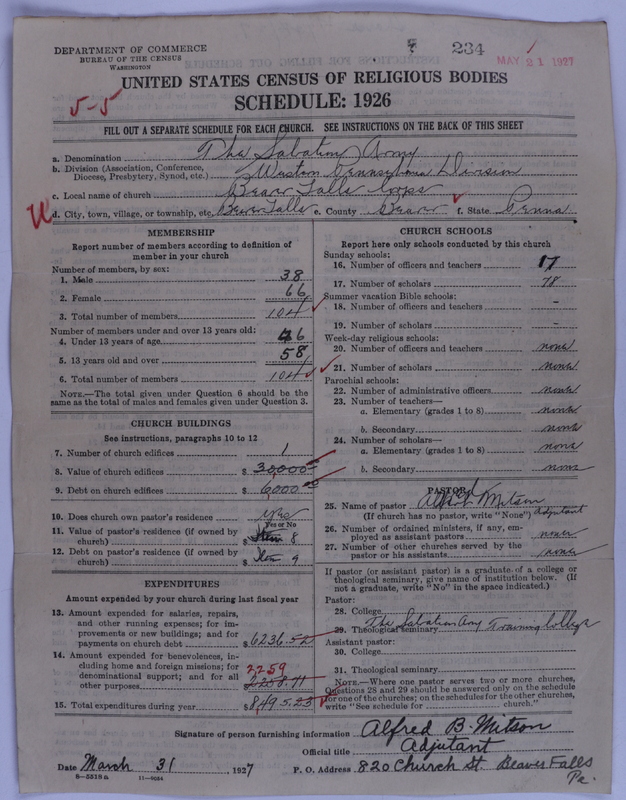 ? 234 MAY 21 1927
DEPARTMENT OF COMMERCE
BUREAU OF THE CENSUS
WASHINGTON
UNITED STATES CENSUS OF RELIGIOUS BODIES
5-5
SCHEDULE: 1926
FILL OUT A SEPARATE SCHEDULE FOR EACH CHURCH. SEE INSTRUCTIONS ON THE BACK OF THIS SHEET
a. Denomination The Salvation Army
b. Division (Association, Conference,
Diocese, Presbytery, Synod, etc.) Western Pennsylvania Division
c. Local name of church Beaver Falls Corps
d. City, town, village, or township, etc. Beaver Falls e. County Beaver f. State Penna
MEMBERSHIP
Report number of members according to definition of
member in your church
Number of members, by sex:
1. Male 38
2. Female 66
3. Total number of members 104
Number of members under and over 13 years old:
4. Under 13 years of age 46
5. 13 years old and over 58
6. Total number of members 104
NOTE.—The total given under Question 6 should be
same as the total of males and females given under Question 3.
CHURCH BUILDINGS
See instructions, paragraphs 10 to 12
7. Number of church edifices 1
8. Value of church edifices $ 30,000.00
9. Debt on church edifices $ 6000.00
10. Does church own pastor's residence yes
Yes or No
11. Value of pastor's residence (if owned by
church) $ Item 8
12. Debt on pastor's residence (if owned by
church) $ Item 9
EXPENDITURES
Amount expended by your church during last fiscal year
13. Amount expended for salaries, repairs,
and other running expenses; for im-
provements or new buildings; and for
payments on church debt $ 6236.52
14. Amount expended for benevolences, in-
cluding home and foreign missions; for
denominational support; and for all 2,259
other purposes $ 2258.71
15. Total expenditures during year $ 8,495.23
CHURCH SCHOOLS
Report here only schools conducted by this church
Sunday schools:
16. Number of officers and teachers 17
17. Number of scholars 78
Summer vacation Bible schools:
18. Number of officers and teachers -
19. Number of scholars -
Week-day religious schools:
20. Number of officers and teachers none
21. Number of scholars none
Parochial schools:
22. Number of administrative officers none
23. Number of teachers—
a. Elementary (grades 1 to 8) none
b. Secondary none
24. Number of scholars—
a. Elementary (grades 1 to 8) none
b. Secondary none
PASTOR
25. Name of pastor Alfred B. Mitson
(If church has no pastor, write "None") Adjutant
26. Number of ordained ministers, if any, em-
ployed as assistant pastors none
27. Number of other churches served by the
pastor or his assistants none
If pastor (or assistant pastor) is a graduate of a college or
theological seminary, give name of institution below. (If
not a graduate, write "No" in the space indicated.)
Pastor:
28. College
29. Theological seminary The Salvation Army Training College
Assistant pastor:
30. College
31. Theological seminary
NOTE.—Where one pastor serves two or more churches,
Questions 28 and 29 should be answered only on the schedule
for one of the churches; on the schedules for the other churches,
write "See schedule for church."
Signature of person furnishing information Alfred B. Mitson
Official title Adjutant
Date March 31, 1927 P. O. Address 820 Church St. Beaver Falls
Pa.
8—5518a 11—9084